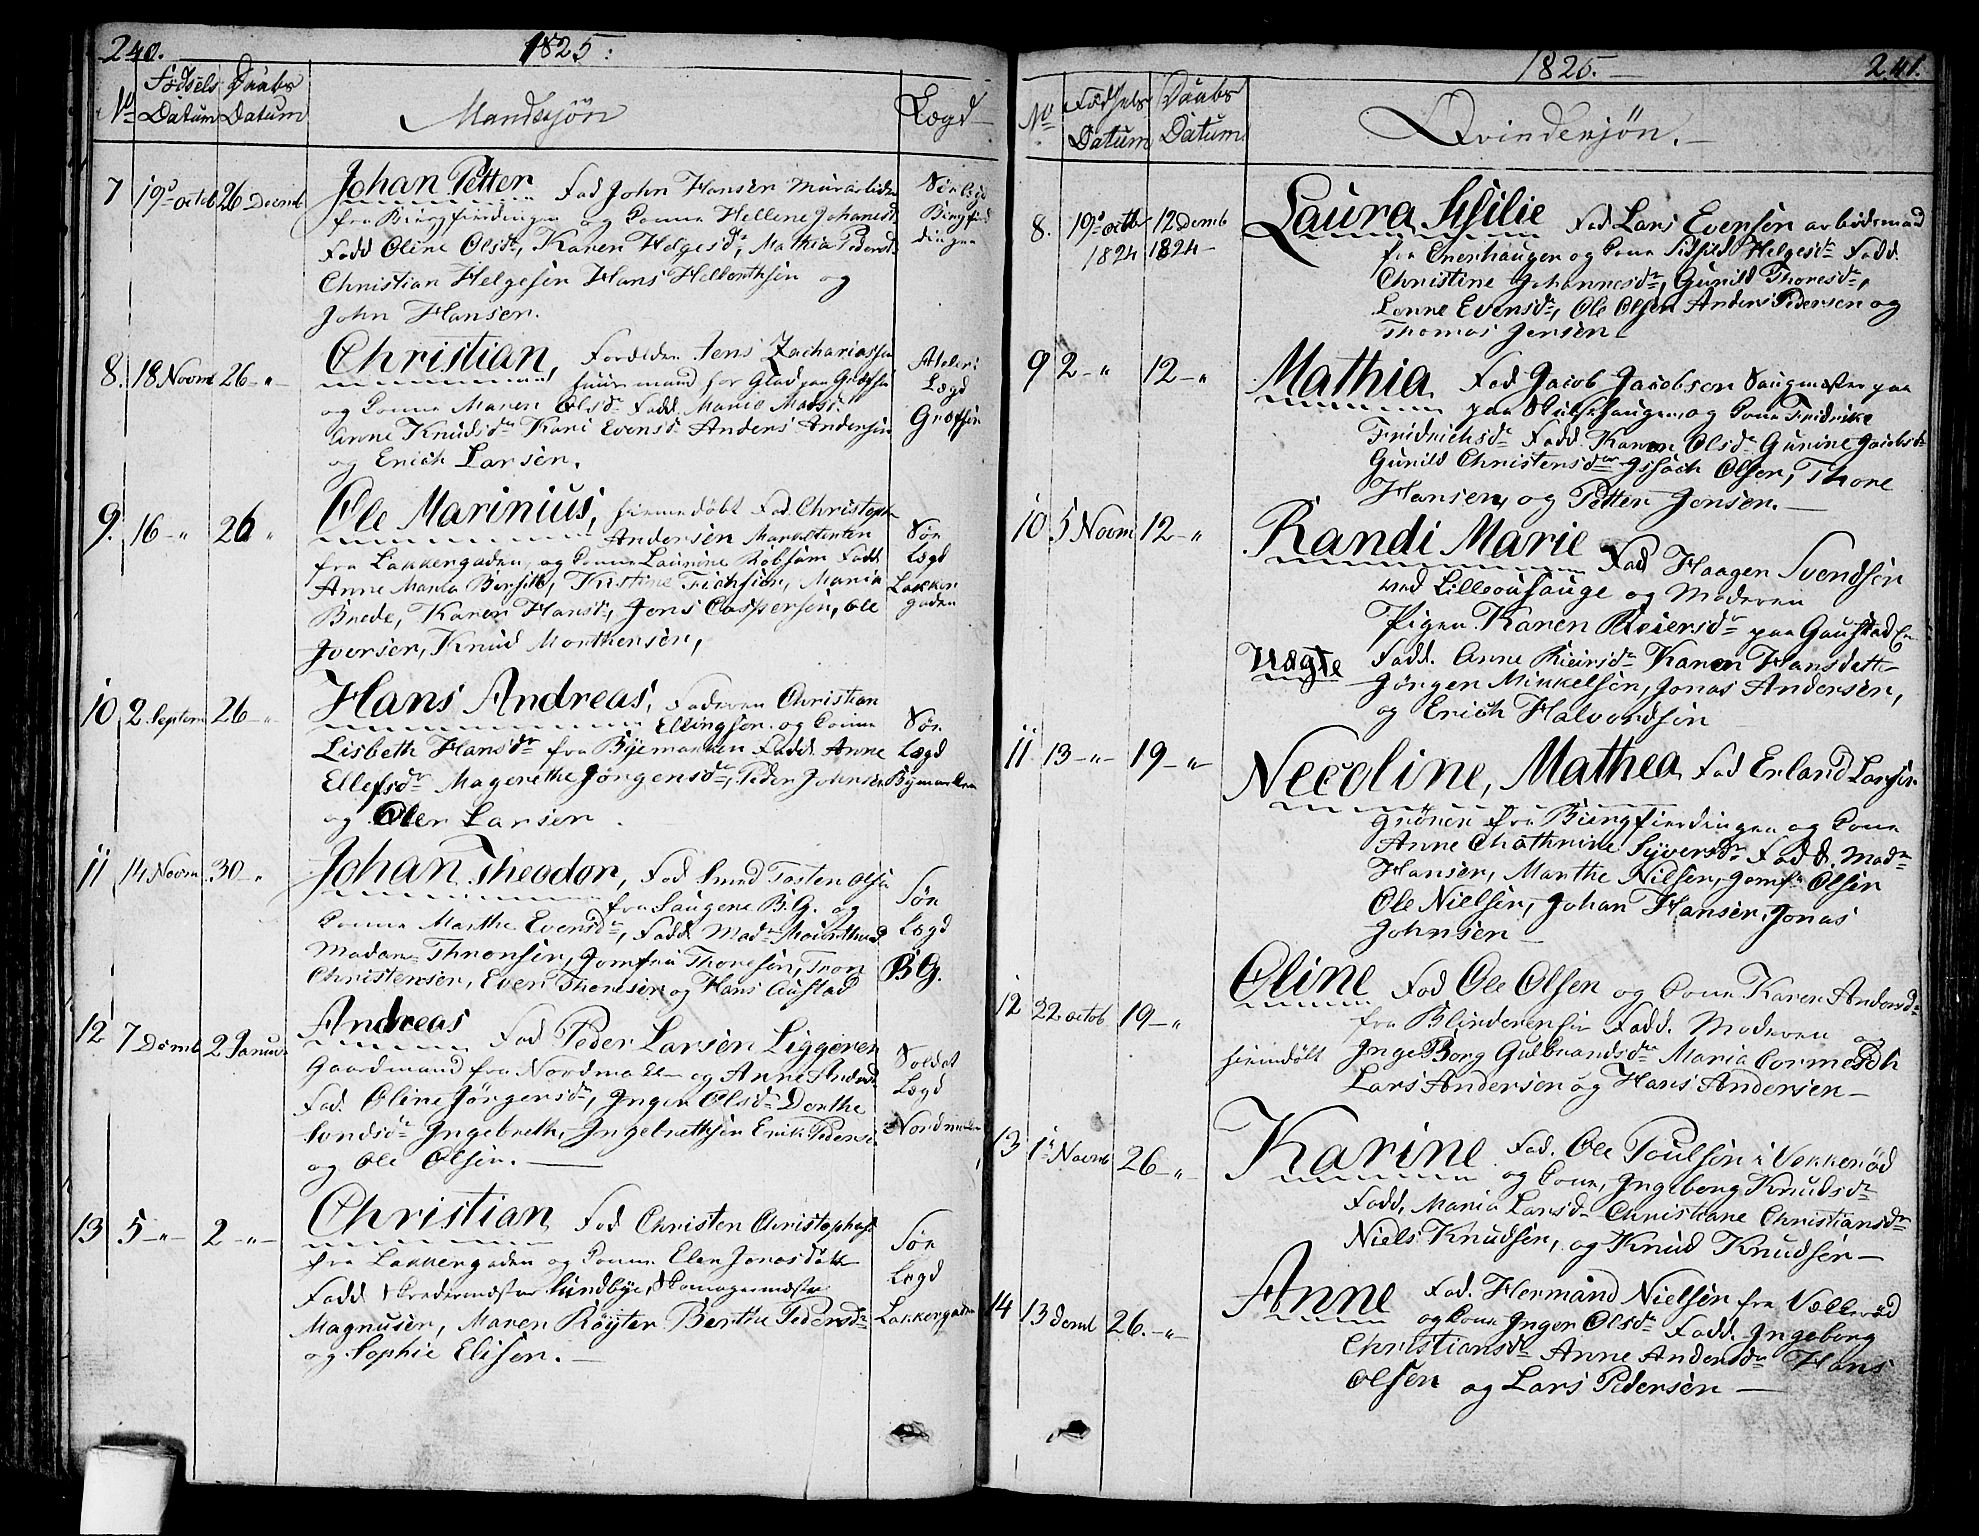 240.
1825:
No Födsels Datum Daabs Datum Mandskjön Lægd
7 19de octob 26 Decemb Johan Petter Fad John Hansen
fra Biergfierdingen og Conna Hellene Johanesd
Fadd Oline Olsdr, Karen Helgesdr, Mathia Pedersd
Christian Helgesen Hans og
John Hansen.
Sörlægd Biergfierdingen
8. 18 Novm 26 -"- Christian, Foreldre Jens Zachariassen
huusmand for Glad paa Græfsen
og Conna Maren Olsdr Fadd. Marie Madsd.
Anne Knudsdr Kari Evensd. Anders Andersen
og Erich Larsen.
Lægd Græfsen
9. 16 -"- 26 " Ole Marinius, hiemmedöbt Fad. Christoph
Andersen Marketenter
fra Lakkergaden, og Conna Laurine Fadd
Anne Maria Kistine Maria
Brede, Karen Hansd, Jens Caspersen, Ole
Jversen, Knud Morthensen,
Sör Lægd Lakkergaden
10 2 Septem 26 -"- Hans Andreas, Faderen Christian
Ellingsen og Conna
Lisbeth Hansdr fra Byemarken Fadd. Anne
Ellefsdr Magerethe Jörgensdr, Peder Johnsen
og Oler Larsen.
Sör Lægd Bymarken
11 14 Novm 30 -"- Johan Theodor, Fad Smed Tosten Olsen
fra Saugene B.G. og
Conna Marthe Evensdr, Fadd. Mad
Madam Thronsen, Jomfru Thoresen, Tron
Christensen, Even Thoresen og Hans Austad
Sör Lægd BG.
12 7 Decmb 2 Januar Andreas Fad Peder Larsen Liggeren
Gaardmand fra Nordma og Anne Andersd
Fad. Oline Jörgensdr, Inger Olsdr Dorthe
Ingebreth Ingebrethsen Erik Pedersen
og Ole Olsen.
Soldat Lægd Nordmarken
13 5 -"- 2 -"- Christian Fad Christen Christophersen
fra Lakkergaden og Conna Elen Jonasdatt
Fadd Skredermester Lundbye, Skomagermester
Magnusen, Maren Röyter Berthe Pedersdr
og Sophie Elisen.
Sör Lægd Lakkergaden
1825. 241.
No Födsels Datum Daabs Datum Qvindekjön.
8. 19de octbr 1824 12 Decmb 1824 Laura Fad Lars Evensen arbeidsmand
fra Enerhaugen og Cona Helgesdr Fadd.
Christine Johannesdr, Gunild Thoresdr,
Lenne Evensdr, Ole Olsen Anders Pedersen og
Thomas Jensen
9 2 -" 12 -" Mathia Fad Jacob Jacobsen Saugmester paa
paa og Cona Fridrike
Fridrichsdr Fadd. Karen Olsdr Gunine Jacobsdr
Gunild Christensdr Issach Olsen, Thore
Hansen, og Petter Jensen.
10 5 Novm 12 -" Randi Marie Fad Haagen Svendsen
ved Lillevoksauge og Moderen
Pigen Karen Reiersdr paa Gaustad
Uægte Fadd. Anne Reiersdr Karen Hansdatt
Jörgen Mikkelsen, Jonas Andersen,
og Erich Halvordsen
11 13 -"- 19 -" Necoline, Mathea Fad Erland Larsen
fra Biergfierdingen og Cona
Anne Chathrine Syversdr Fadd. Madm
Hansen, Marthe Nilsen, Jomfr. Olsen
Ole Nielsen, Johan Hansen, Jonas
Johnsen
12 22 octob 19 -" Oline Fad Ole Olsen og Cona Karen Andersdr
fra Blinderen Fadd. Moderen og
hiemdölt Ingeborg Gulbrandsdr Maria
Lars Andersen og Hans Andersen
13 1de Novmb 26 -" Karine Fad. Ole Poulsen i Vækkeröd
og Cona, Ingeborg Knudsdr
Fadd, Maria Larsd Christiane Christiansdr
Niels Knudsen, og Knud Knudsen
14 13 Decmb 26. -" Anne Fad. Hermand Nielsen fra Vækkeröd
og Cona Inger Olsdr Fadd. Ingeborg
Christiansdr Anne Andersdr Hans
Olsen og Lars Pedersen